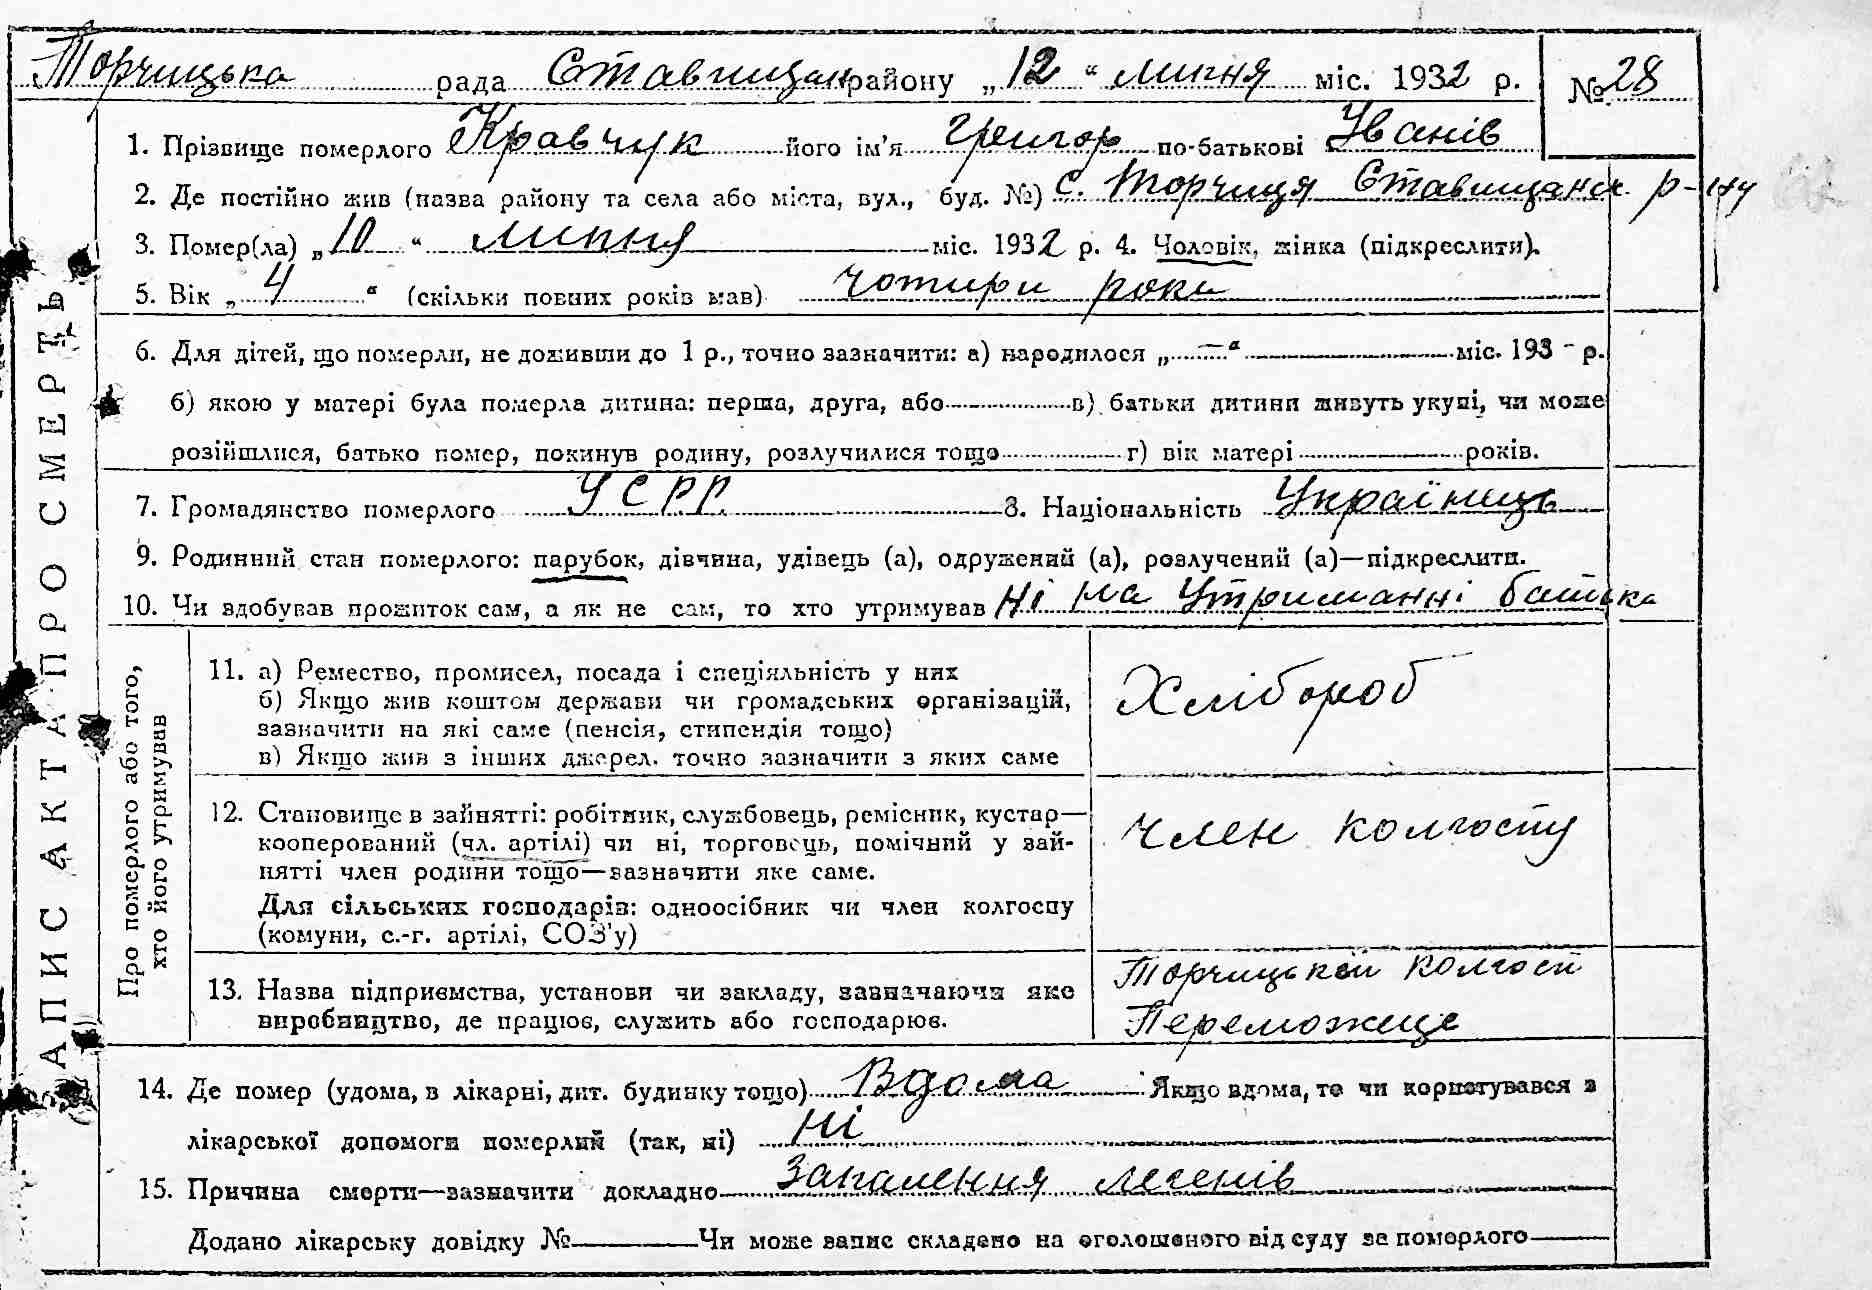 Торчицька рада Ставищан району „12“ липня міс. 1932 р. № 28
1. Прізвище померлого Кравчук його ім’я Григор по-батькові Іванів
2. Де постійно жив (назва району та села або міста, вул., буд. №) с. Торчиця Ставищанск. р-ну
3. Помер(ла) „10“ липня міс. 1932 р. 4. Чоловік, жінка (підкреслити).
5. Вік „4“ (скільки повних років мав) чотири роки
6. Для дітей, що померли, не доживши до 1 р., точно зазначити: а) народилося „—“ — міс. 193- р.
б) якою у матері була померла дитина: перша, друга, або — в) батьки дитини живуть укупі, чи може
розійшлися, батько помер, покинув родину, розлучилися тощо — г) вік матері — років.
7. Громадянство померлого УСРР. 8. Національність Українець
9. Родинний стан померлого: парубок, дівчина, удівець (а), одружений (а), розлучений (а)—підкреслити.
10. Чи здобував прожиток сам, а як не сам, то хто утримував Ні на Утриманні батька
ЗАПИС АКТА ПРО СМЕРТЬ
Про померлого або того,
хто його утримував
11. а) Ремество, промисел, посада і спеціяльність у них
б) Якщо жив коштом держави чи громадських організацій,
зазначити на які саме (пенсія, стипендія тощо)
в) Якщо жив з інших джерел, точно зазначити з яких саме
Хлібороб
12. Становище в зайнятті: робітник, службовець, ремісник, кустар—
кооперований (чл. артілі) чи ні, торговець, помічний у зай-
нятті член родини тощо—зазначити яке саме.
Для сільських господарів: одноосібник чи член колгоспу
(комуни, с.-г. артілі, СОЗ’у)
член колгоспу
13. Назва підприємства, установи чи закладу, зазначаючи яке
виробництво, де працює, служить або господарює.
Торчицькій колгосп
Переможице
14. Де помер (удома, в лікарні, дит. будинку тощо) Вдома Якщо вдома, то чи користувався з
лікарської допомоги померлий (так, ні) Ні
15. Причина смерти—зазначити докладно Запалення легенів
Додано лікарську довідку № — Чи може запис складено на оголошеного від суду за померлого —